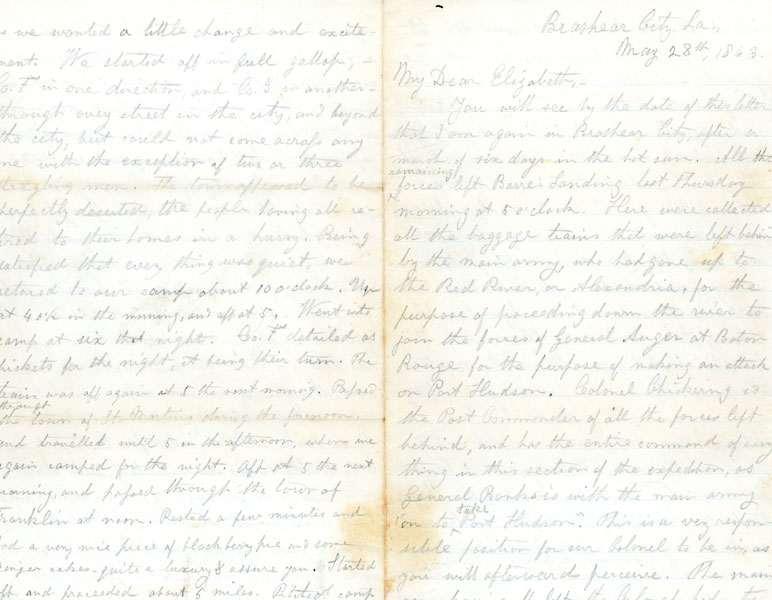 Brashear City, La.,
May 28th, 1863.
My Dear Elizabeth,-
You will see by the date of this letter
that I am again in Brashear City, after a
march of six days in the hot sun. All the
remaining
forces left Barre's Landing last Thursday
morning at 5 o'clock. Here were collected
all the baggage trains that were left behind
by the main army, who had gone up to
the Red River, or Alexandria, for the
purpose of proceeding down the river to
join the forces of General Auger at Baton
Rouge for the purpose of making an attack
on Port Hudson. Colonel Chickering is
the Post Commander of all the forces left
behind, and has the entire command of every
thing in this section of the expedition, as
General Banks is with the main army
take
"on to Port Hudson". This is a very respon-
sible position for our Colonel to be in, as
you will afterwards perceive. The main
left the
as we wanted a little change and excite-
ment. We started off in full gallop, -
Co. F in one direction, and Co. I in another-
through every street in the city, and beyond
the city, but could not come across any
one with the exception of two or three
men. The town appeared to be
perfectly deserted, the people having all re-
tired to their homes in a hurry. Being
satisfied that every thing was quiet, we
returned to our camp about 10 o'clock. Up
at 4 o'clk in the morning, and off at 5. Went into
camp at six that night. Co. F detailed as
pickets for the night, it being their turn. The
train was off again at 5 the next morning. Passed
through
the town of St. Martins during the forenoon,
and travelled until 5 in the afternoon, when we
again camped for the night. Off at 5 the next
morning, and passed through the town of
Franklin at noon. Rested a few minutes and
had a very nice piece of blackberry pie and some
ginger cakes - quite a luxury I assure you. Started
off and proceeded about 5 miles. Pitched camp